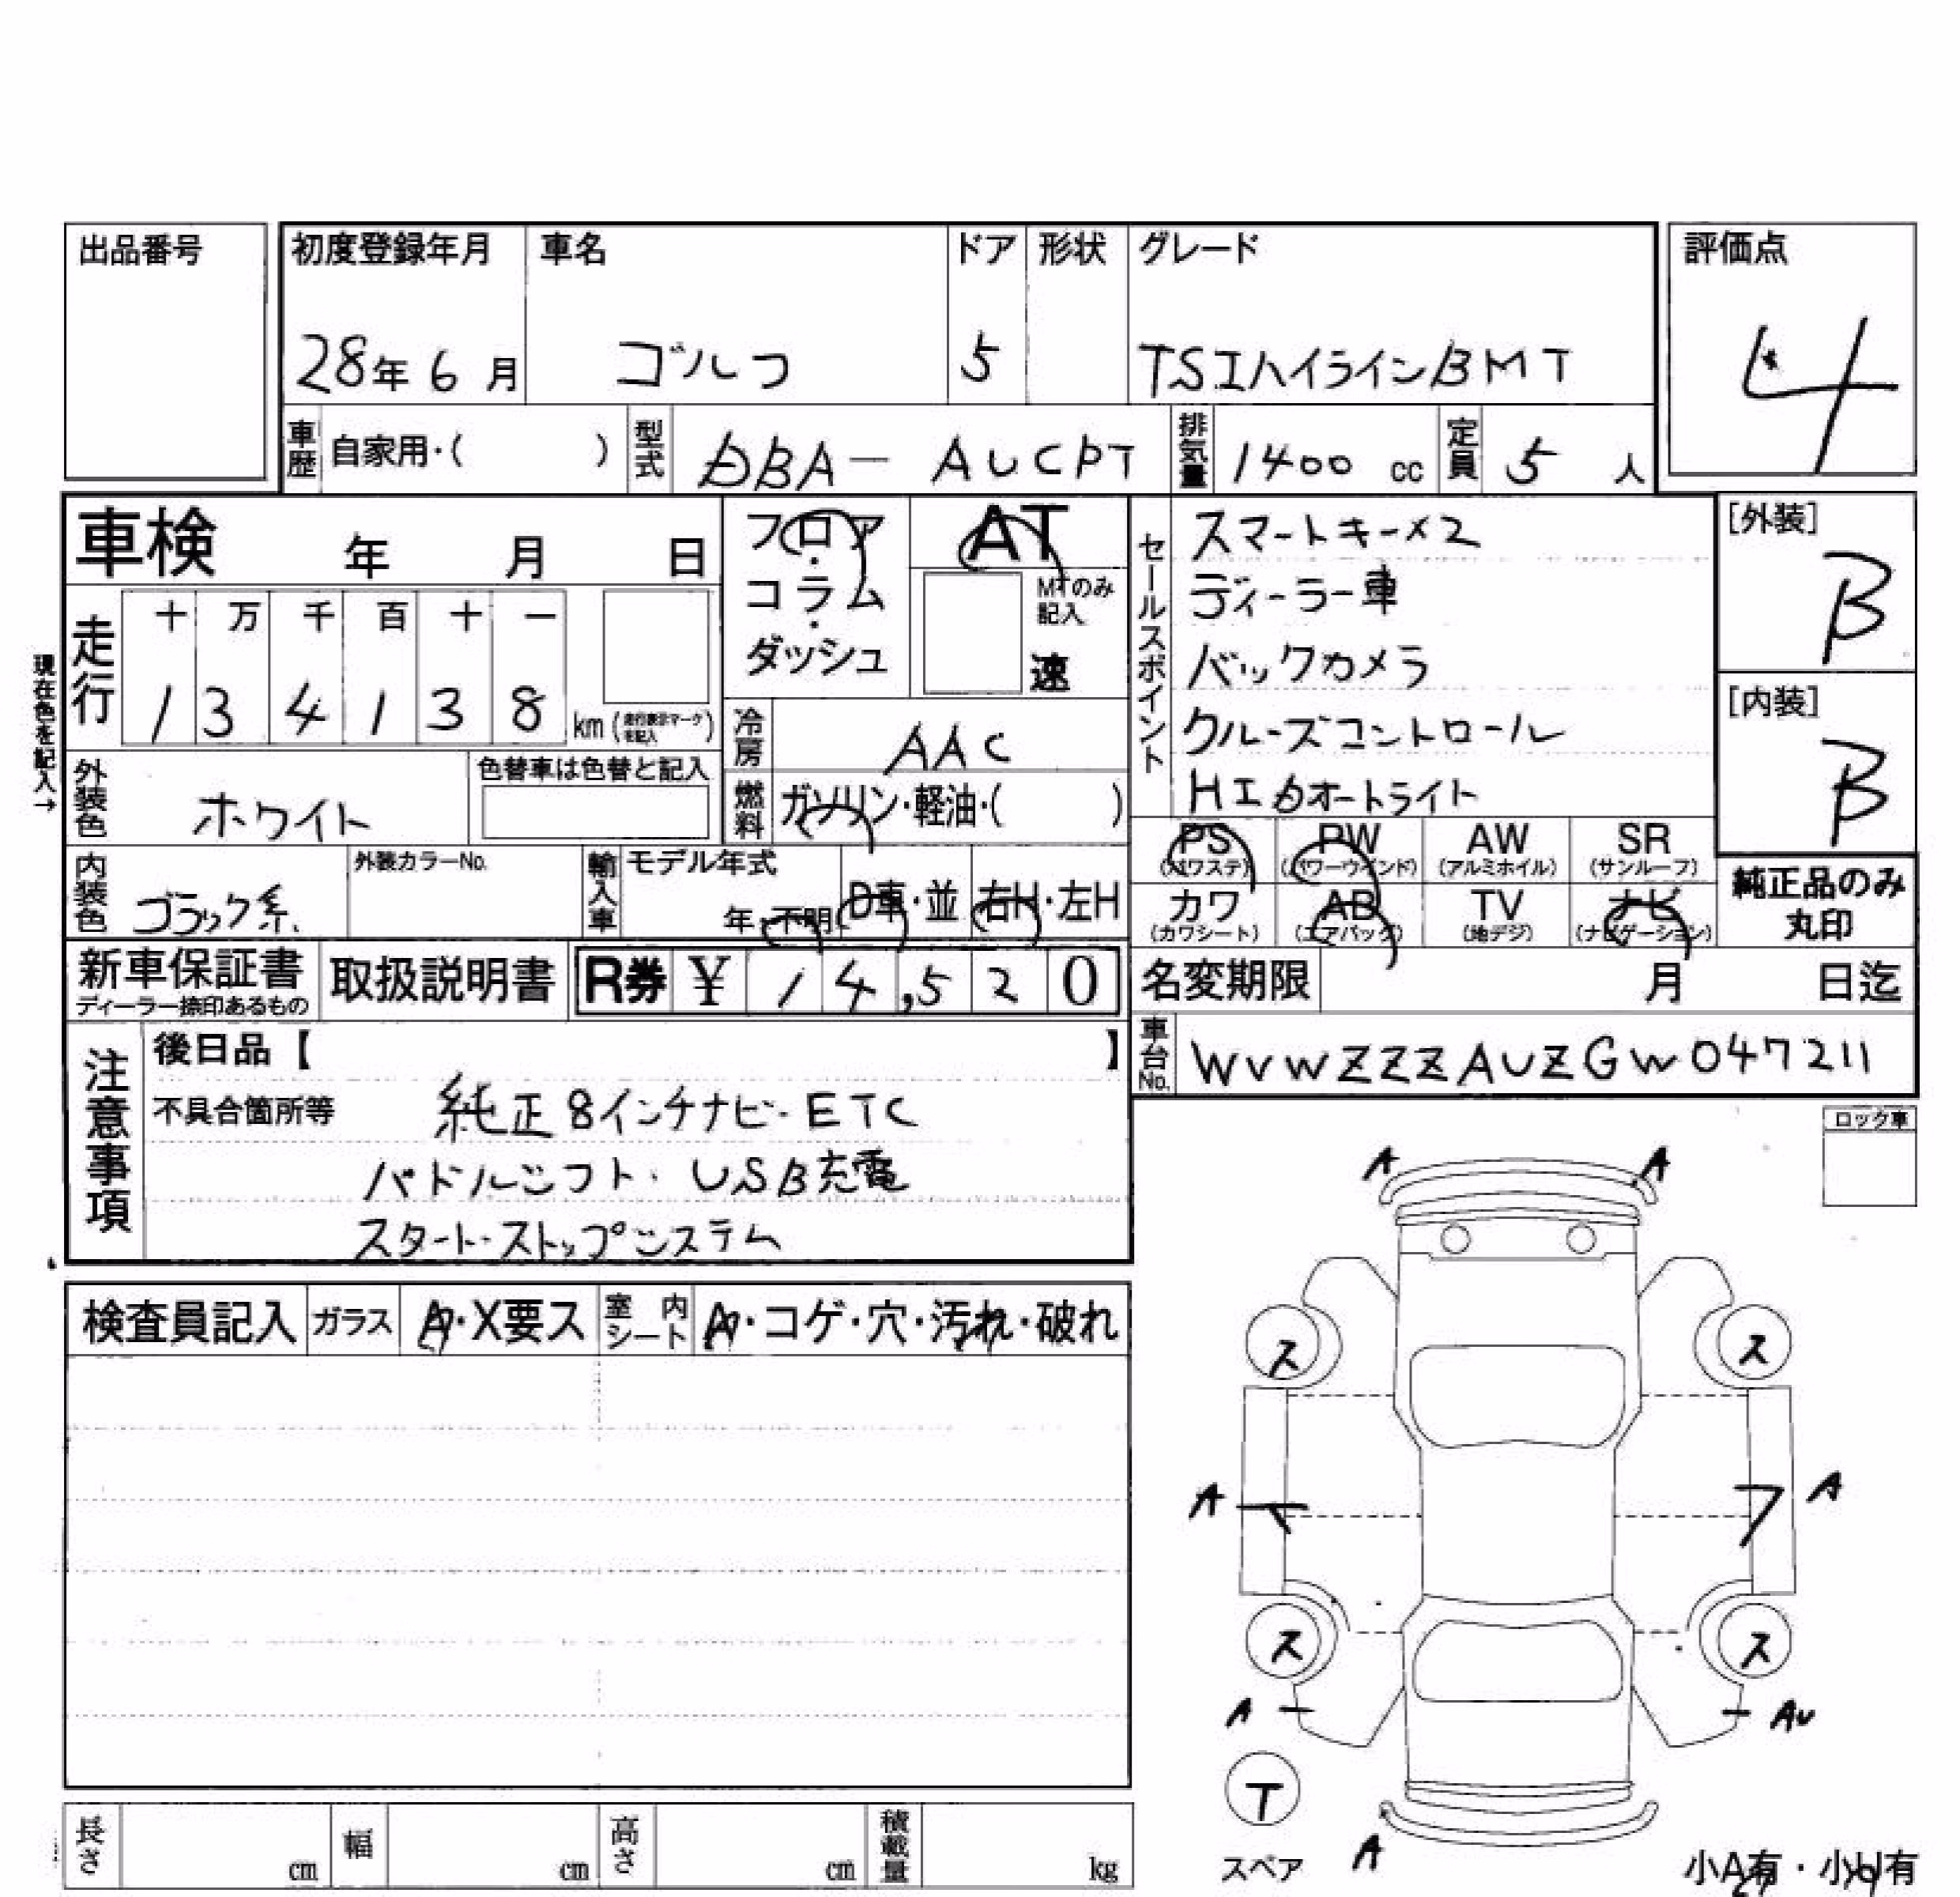 出品番号
初度登録年月 車名 ドア 形状 グレード 評価点
28年 6月 ゴルフ 5 TSIハイラインBMT 4
車歴 自家用・( ) 型式 DBA－AUCPT 排気量 1400 cc 定員 5 人
車検 年 月 日
フロア・コラム・ダッシュ
AT
MTのみ記入
速
現在色を記入→
走行 十 万 千 百 十 一
1 3 4 1 3 8 km (走行表示マークを記入)
冷房 AAC
外装色 ホワイト 色替車は色替と記入
燃料 ガソリン・軽油・( )
内装色 ブラック系 外装カラーNo. 輸入車 モデル年式 年・不明 D車・並 右H・左H
セールスポイント
スマートキー×2
ディーラー車
バックカメラ
クルーズコントロール
HIDオートライト
[外装]
B
[内装]
B
PS (パワステ) PW (パワーウインド) AW (アルミホイル) SR (サンルーフ)
カワ (カワシート) AB (エアバッグ) TV (地デジ) ナビ (ナビゲーション)
純正品のみ丸印
新車保証書 ディーラー捺印あるもの 取扱説明書 R券 ¥ 14,520
名変期限 月 日迄
車台No. WVWZZZAUZGW047211
注意事項
後日品【 】
不具合箇所等 純正8インチナビ・ETC
パドルシフト・USB充電
スタート・ストップシステム
ロック車
検査員記入 ガラス A・X要ス 室内シート A・コゲ・穴・汚れ・破れ
A A
ス ス
A A
ス ス
A AU
T
スペア A
小A有・小U有
長さ cm 幅 cm 高さ cm 積載量 kg